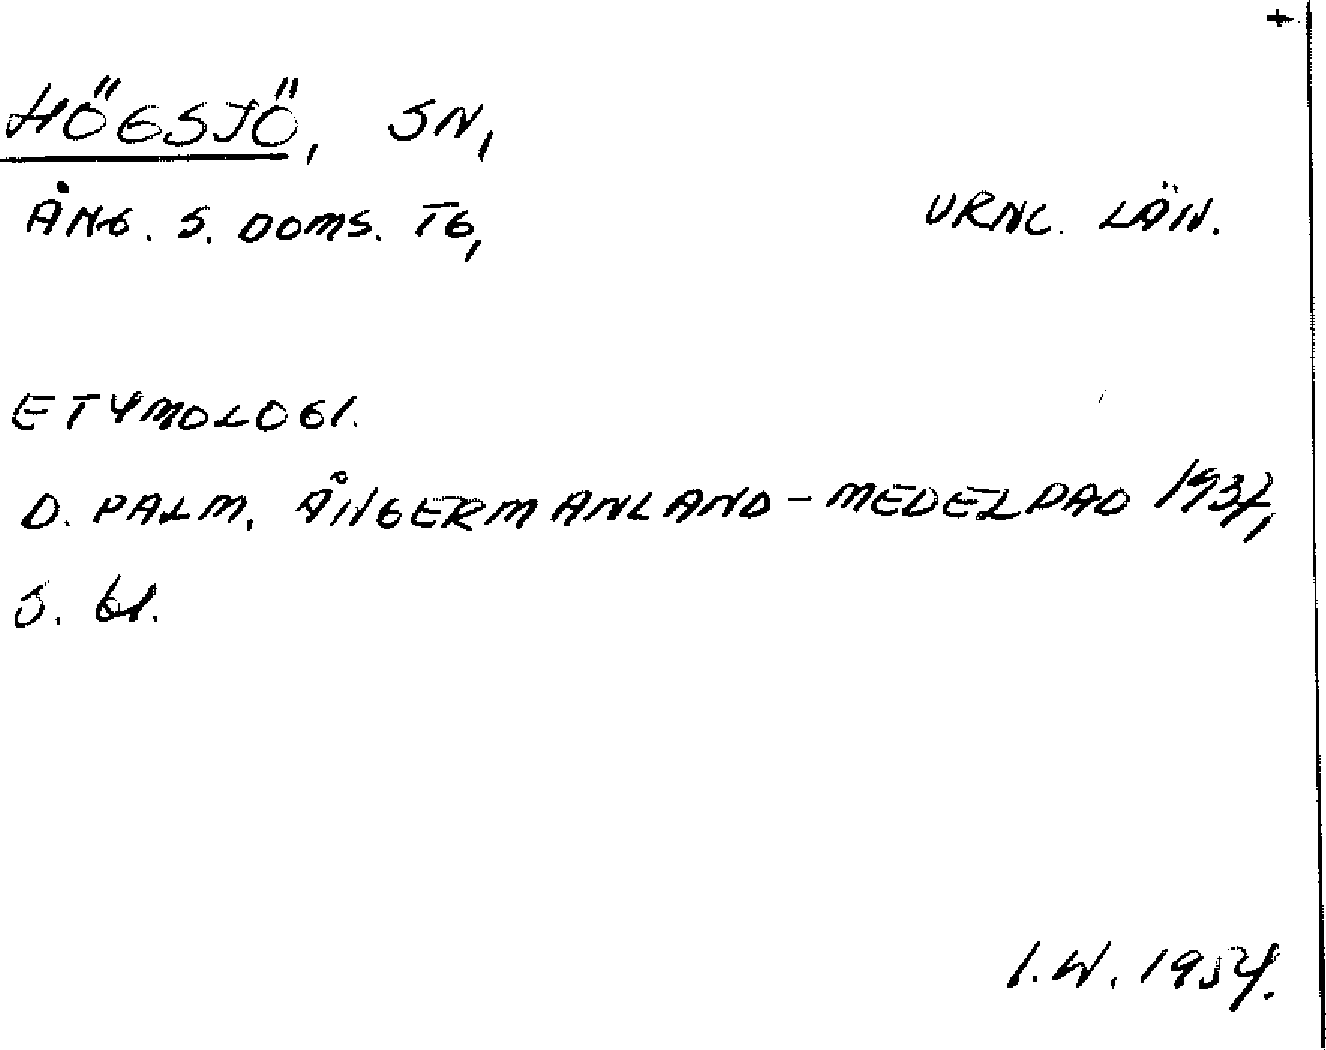 +
HÖGSJÖ, SN,
ÅNG. S. DOMS. TG, VRNL. LÄN.
ETYMOLOGI.
D. PALM. ÅNGERMANLAND-MEDELPAD 1937,
S. 61.
I.W. 1954.